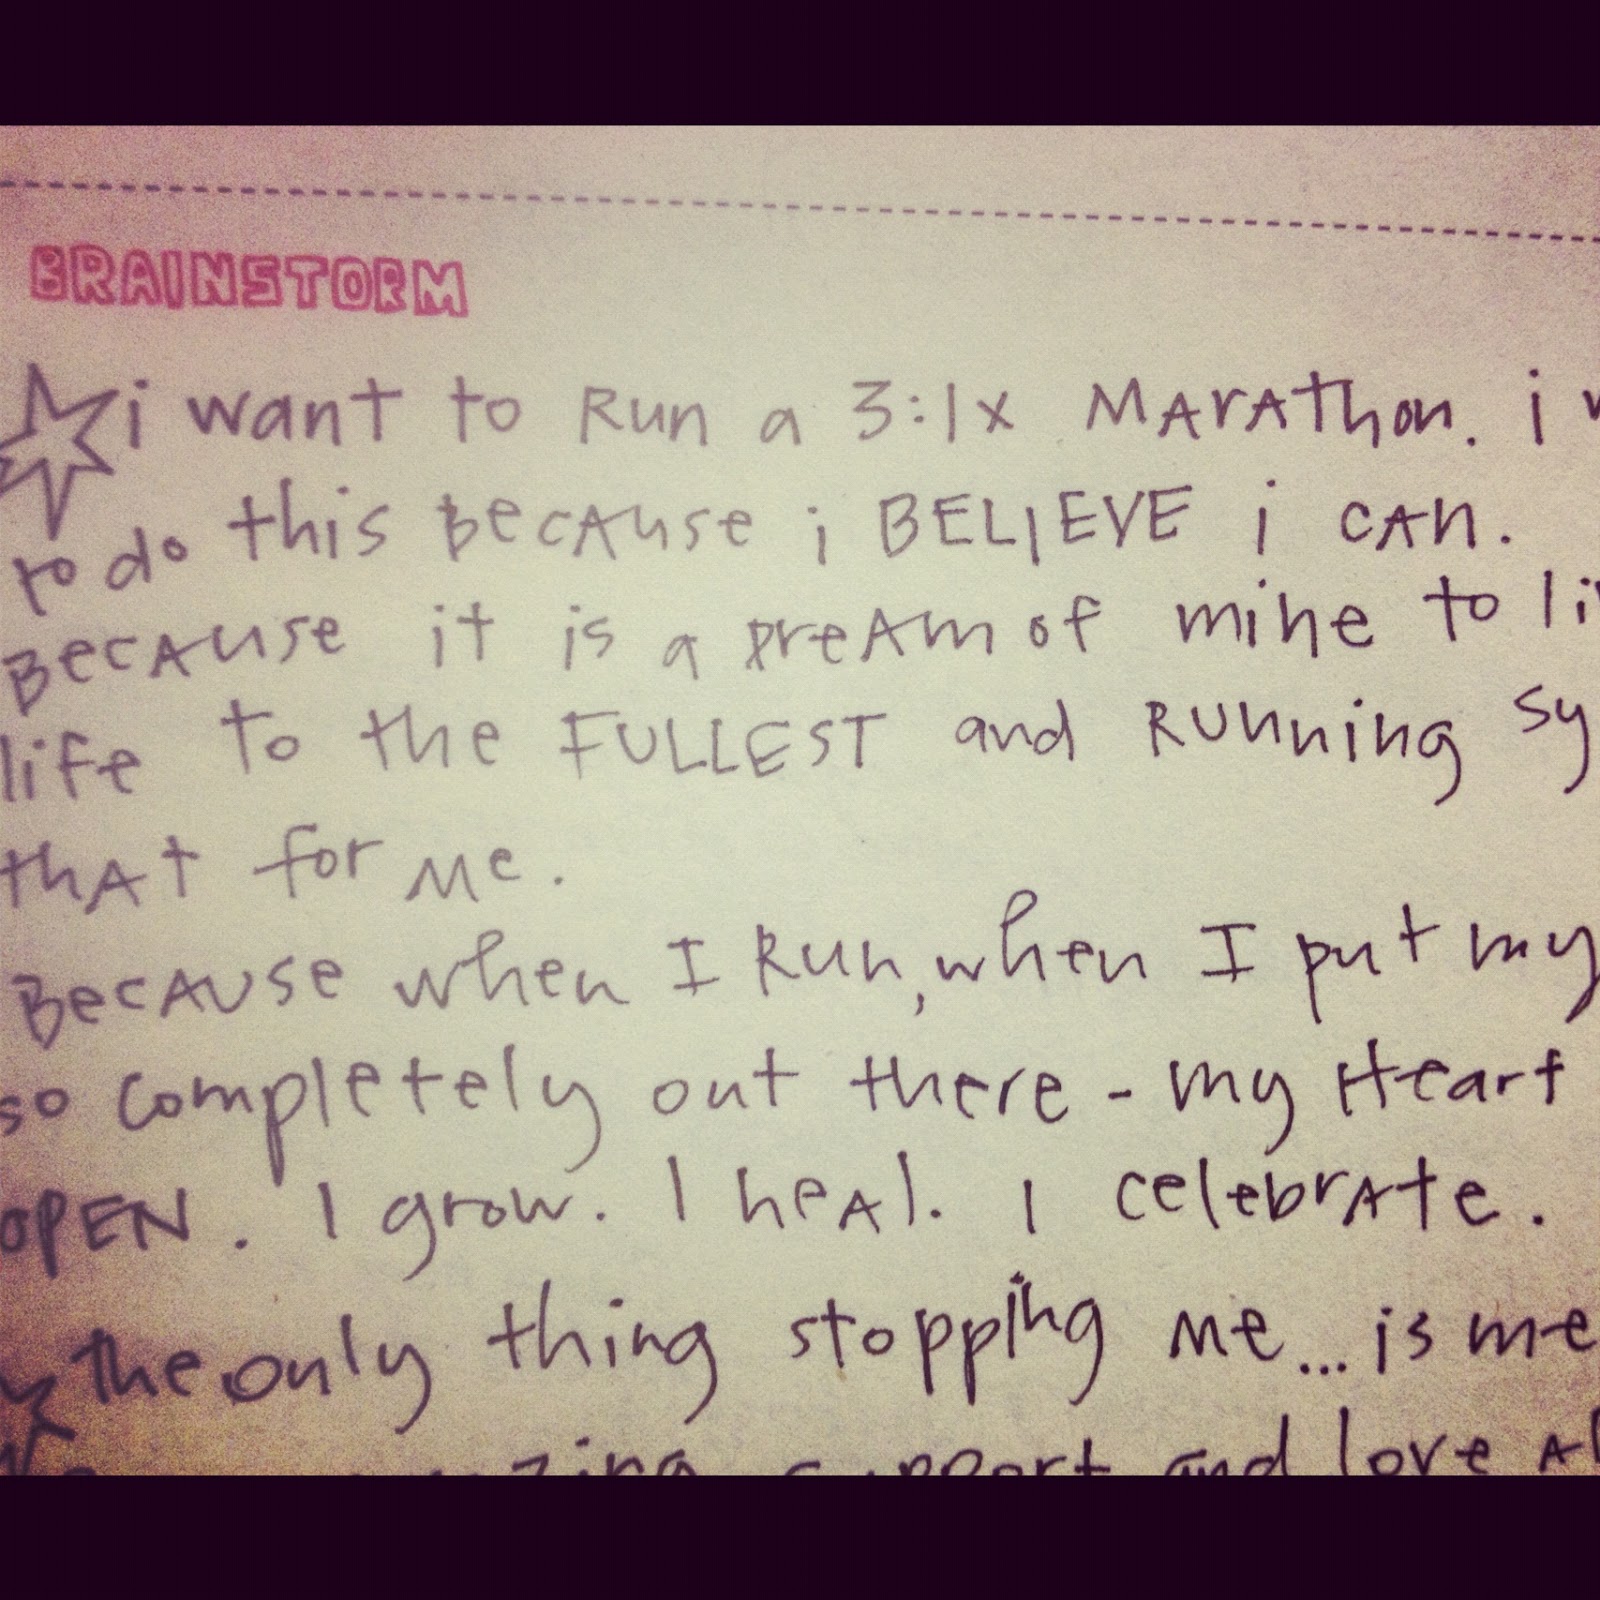 BRAINSTORM
i want to Run a 3:1x MArAthon. i
to do this BecAuse i BELIEVE i cAn.
BecAuse it is a DreAm of mine to
life to the FULLEST and RUnning
thAt for Me.
BecAuse when I Run, when I put my
so completely out there - my Heart
OPEN. I grow. I heAl. I celebrAte.
the only thing stopping Me... is me
support and love